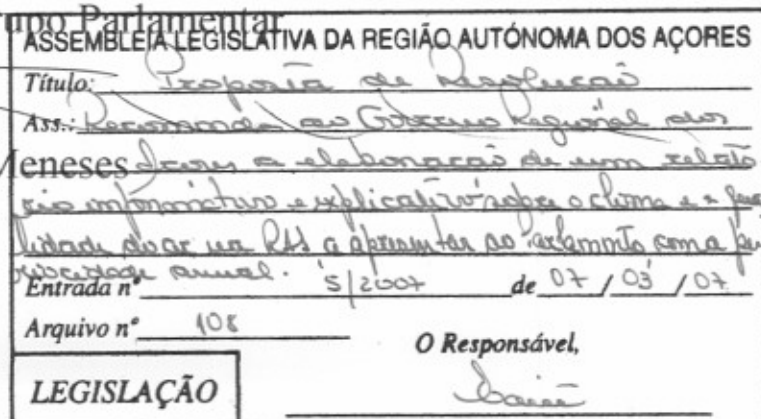 rupo Parlamentar
ASSEMBLEIA LEGISLATIVA DA REGIÃO AUTÓNOMA DOS AÇORES
Título: Proposta de Resolução
Ass.: Recomenda ao Governo Regional dos
Meneses Açores a elaboração de um relató
rio informativo e explicativo sobre o clima e a qua
lidade do ar na RAA a apresentar ao Parlamento com a pe
riodicidade anual.
Entrada nº 5/2007 de 07/03/07
Arquivo nº 108
O Responsável,
LEGISLAÇÃO